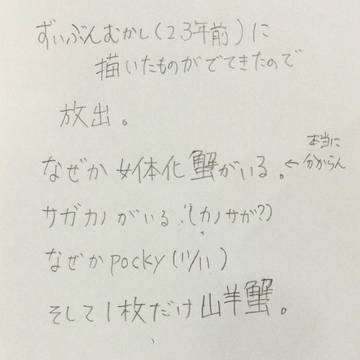 ずいぶんむかし(2.3年前)に
描いたものがでてきたので
放出。
なぜか女体化蟹がいる。←本当に
わからん
サガカノがいる。(カノサが?)
なぜかpocky(11/11)
そして1枚だけ山羊蟹。